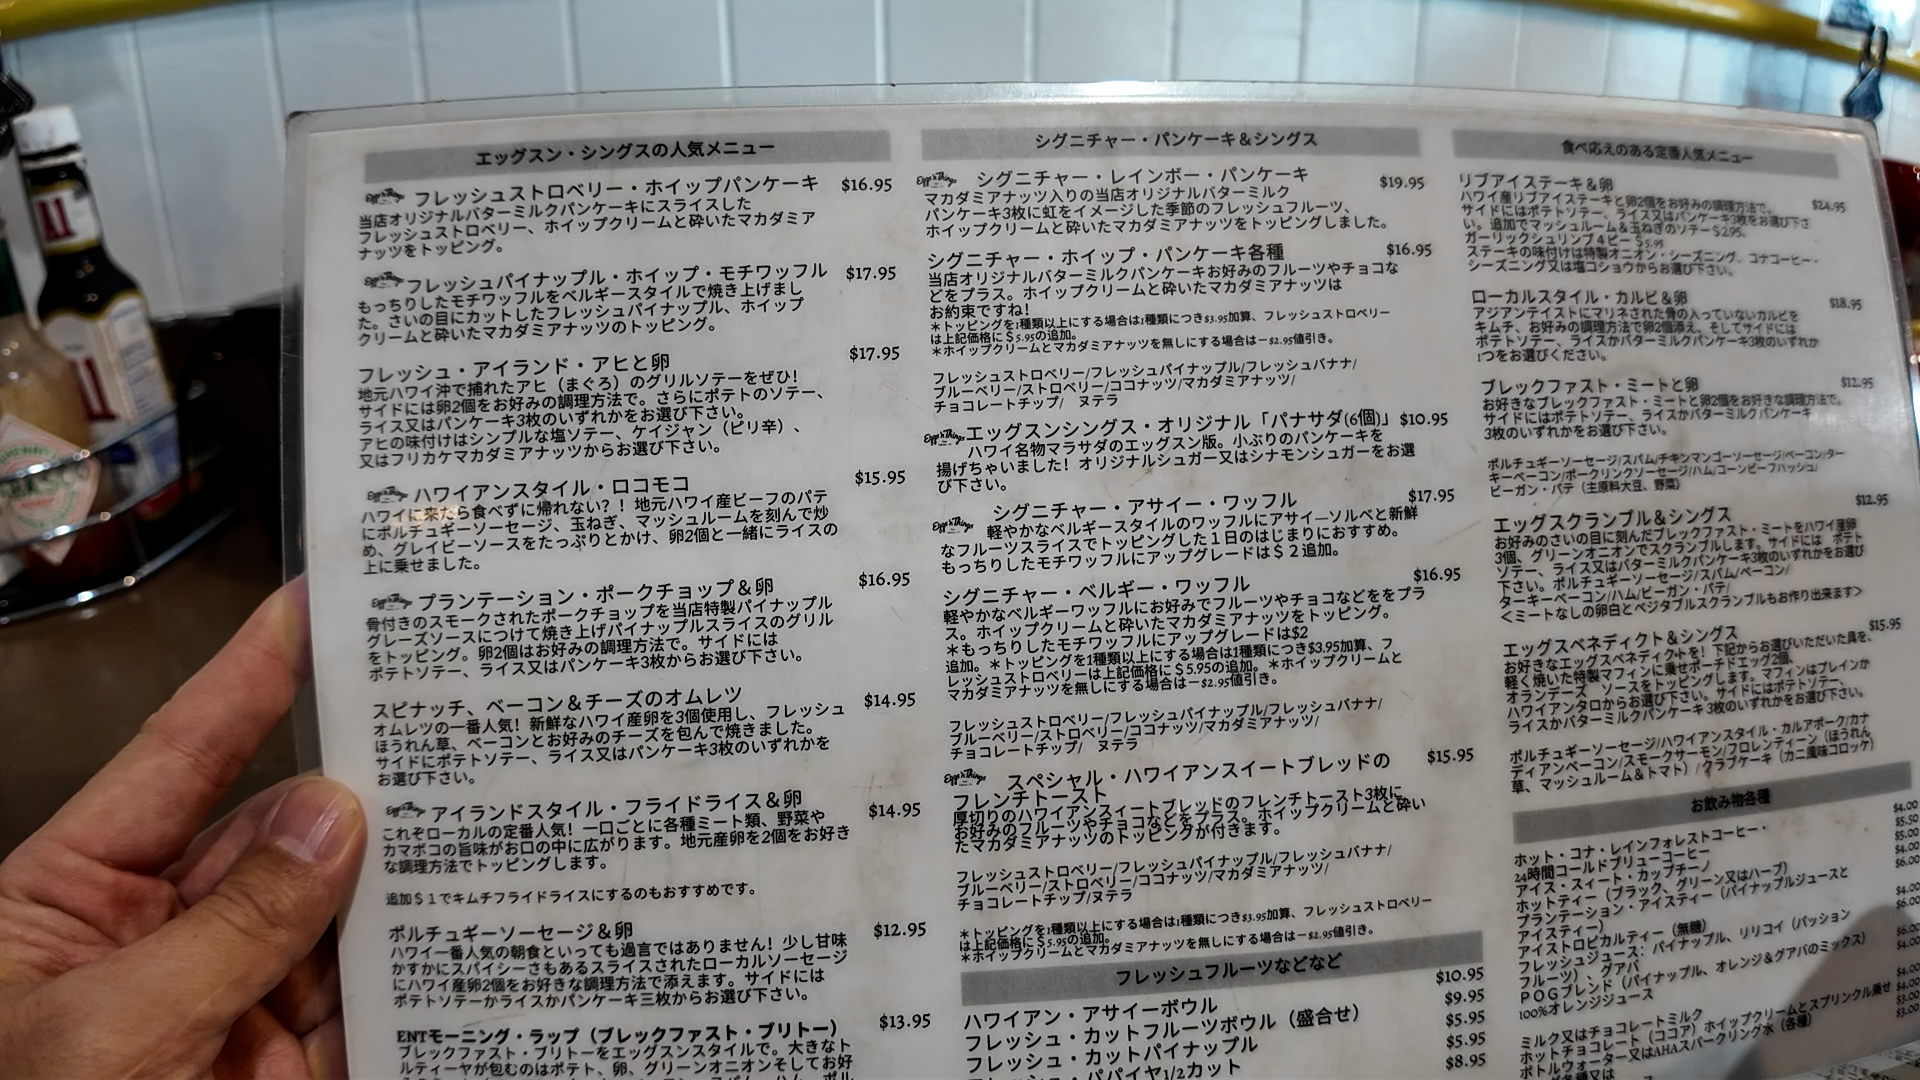 エッグスン・シングスの人気メニュー
フレッシュストロベリー・ホイップパンケーキ $16.95
当店オリジナルバターミルクパンケーキにスライスした
フレッシュストロベリー、ホイップクリームと砕いたマカダミア
ナッツをトッピング。
フレッシュパイナップル・ホイップ・モチワッフル $17.95
もっちりしたモチワッフルをベルギースタイルで焼き上げまし
た。さいの目にカットしたフレッシュパイナップル、ホイップ
クリームと砕いたマカダミアナッツのトッピング。
フレッシュ・アイランド・アヒと卵 $17.95
地元ハワイ沖で捕れたアヒ（まぐろ）のグリルソテーをぜひ！
サイドには卵2個をお好みの調理方法で。さらにポテトのソテー、
ライス又はパンケーキ3枚のいずれかをお選び下さい。
アヒの味付けはシンプルな塩ソテー、ケイジャン（ピリ辛）、
又はフリカケマカダミアナッツからお選び下さい。
ハワイアンスタイル・ロコモコ $15.95
ハワイに来たら食べずに帰れない？！地元ハワイ産ビーフのパテ
にポルチュギーソーセージ、玉ねぎ、マッシュルームを刻んで炒
め、グレイビーソースをたっぷりとかけ、卵2個と一緒にライスの
上に乗せました。
プランテーション・ポークチョップ＆卵 $16.95
骨付きのスモークされたポークチョップを当店特製パイナップル
グレーズソースにつけて焼き上げパイナップルスライスのグリル
をトッピング。卵2個はお好みの調理方法で。サイドには
ポテトソテー、ライス又はパンケーキ3枚からお選び下さい。
スピナッチ、ベーコン＆チーズのオムレツ $14.95
オムレツの一番人気！新鮮なハワイ産卵を3個使用し、フレッシュ
ほうれん草、ベーコンとお好みのチーズを包んで焼きました。
サイドにポテトソテー、ライス又はパンケーキ3枚のいずれかを
お選び下さい。
アイランドスタイル・フライドライス＆卵 $14.95
これぞローカルの定番人気！一口ごとに各種ミート類、野菜や
カマボコの旨味がお口の中に広がります。地元産卵を2個をお好き
な調理方法でトッピングします。
追加＄１でキムチフライドライスにするのもおすすめです。
ポルチュギーソーセージ＆卵 $12.95
ハワイ一番人気の朝食といっても過言ではありません！少し甘味
かすかにスパイシーさもあるスライスされたローカルソーセージ
にハワイ産卵2個をお好きな調理方法で添えます。サイドには
ポテトソテーかライスかパンケーキ三枚からお選び下さい。
ENTモーニング・ラップ（ブレックファスト・ブリトー） $13.95
ブレックファスト・ブリトーをエッグスンスタイルで。大きなト
ルティーヤが包むのはポテト、卵、グリーンオニオンそしてお好
シグニチャー・パンケーキ＆シングス
シグニチャー・レインボー・パンケーキ $19.95
マカダミアナッツ入りの当店オリジナルバターミルク
パンケーキ3枚に虹をイメージした季節のフレッシュフルーツ、
ホイップクリームと砕いたマカダミアナッツをトッピングしました。
シグニチャー・ホイップ・パンケーキ各種 $16.95
当店オリジナルバターミルクパンケーキお好みのフルーツやチョコな
どをプラス。ホイップクリームと砕いたマカダミアナッツは
お約束ですね！
＊トッピングを1種類以上にする場合は1種類につき$3.95加算、フレッシュストロベリー
は上記価格に＄5.95の追加。
＊ホイップクリームとマカダミアナッツを無しにする場合は－$2.95値引き。
フレッシュストロベリー/フレッシュパイナップル/フレッシュバナナ/
ブルーベリー/ストロベリー/ココナッツ/マカダミアナッツ/
チョコレートチップ/ ヌテラ
エッグスンシングス・オリジナル「パナサダ(6個)」 $10.95
ハワイ名物マラサダのエッグスン版。小ぶりのパンケーキを
揚げちゃいました！オリジナルシュガー又はシナモンシュガーをお選
び下さい。
シグニチャー・アサイー・ワッフル $17.95
軽やかなベルギースタイルのワッフルにアサイーソルベと新鮮
なフルーツスライスでトッピングした１日のはじまりにおすすめ。
もっちりしたモチワッフルにアップグレードは＄２追加。
シグニチャー・ベルギー・ワッフル $16.95
軽やかなベルギーワッフルにお好みでフルーツやチョコなどををプラ
ス。ホイップクリームと砕いたマカダミアナッツをトッピング。
＊もっちりしたモチワッフルにアップグレードは$2
追加。＊トッピングを1種類以上にする場合は1種類につき$3.95加算、フ
レッシュストロベリーは上記価格に＄5.95の追加。＊ホイップクリームと
マカダミアナッツを無しにする場合は－$2.95値引き。
フレッシュストロベリー/フレッシュパイナップル/フレッシュバナナ/
ブルーベリー/ストロベリー/ココナッツ/マカダミアナッツ/
チョコレートチップ/ ヌテラ
スペシャル・ハワイアンスイートブレッドの $15.95
フレンチトースト
厚切りのハワイアンスィートブレッドのフレンチトースト3枚に
お好みのフルーツやチョコなどをプラス。ホイップクリームと砕い
たマカダミアナッツのトッピングが付きます。
フレッシュストロベリー/フレッシュパイナップル/フレッシュバナナ/
ブルーベリー/ストロベリー/ココナッツ/マカダミアナッツ/
チョコレートチップ/ヌテラ
＊トッピングを1種類以上にする場合は1種類につき$3.95加算、フレッシュストロベリー
は上記価格に＄5.95の追加。
＊ホイップクリームとマカダミアナッツを無しにする場合は－$2.95値引き。
フレッシュフルーツなどなど
ハワイアン・アサイーボウル $10.95
フレッシュ・カットフルーツボウル（盛合せ） $9.95
フレッシュ・カットパイナップル $5.95
フレッシュ・パパイヤ1/2カット $5.95
$8.95
食べ応えのある定番人気メニュー
リブアイステーキ＆卵 $24.95
ハワイ産リブアイステーキと卵2個をお好みの調理方法で。
サイドにはポテトソテー、ライス又はパンケーキ3枚をお選び下さ
い。追加でマッシュルーム＆玉ねぎのソテー＄2.95、
ガーリックシュリンプ４ピー＄5.95
ステーキの味付けは特製オニオン・シーズニング、コナコーヒー・
シーズニング又は塩コショウからお選び下さい。
ローカルスタイル・カルビ＆卵 $18.95
アジアンテイストにマリネされた骨の入っていないカルビを
キムチ、お好みの調理方法で卵2個添え、そしてサイドには
ポテトソテー、ライスかバターミルクパンケーキ3枚のいずれか
1つをお選びください。
ブレックファスト・ミートと卵 $12.95
お好きなブレックファスト・ミートと卵2個をお好きな調理方法で。
サイドにはポテトソテー、ライスかバターミルクパンケーキ
3枚のいずれかをお選び下さい。
ポルチュギーソーセージ/スパム/チキンマンゴーソーセージ/ベーコン/ター
キーベーコン/ポークリンクソーセージ/ハム/コーンビーフハッシュ/
ビーガン・パテ（主原料大豆、野菜）
エッグスクランブル＆シングス $12.95
お好みのさいの目に刻んだブレックファスト・ミートをハワイ産卵
3個、グリーンオニオンでスクランブルします。サイドには ポテト
ソテー、ライス又はバターミルクパンケーキ3枚のいずれかをお選び
下さい。ポルチュギーソーセージ/スパム/ベーコン/
ターキーベーコン/ハム/ビーガン・パテ/
＜ミートなしの卵白とベジタブルスクランブルもお作り出来ます＞
エッグスベネディクト＆シングス $15.95
お好きなエッグスベネディクトを！下記からお選びいただいた具を、
軽く焼いた特製マフィンに乗せポーチドエッグ2個、
オランデーズ ソースをトッピングします。マフィンはプレインか
ハワイアンタロからお選び下さい。サイドにはポテトソテー、
ライスかバターミルクパンケーキ3枚のいずれかをお選び下さい。
ポルチュギーソーセージ/ハワイアンスタイル・カルアポーク/カナ
ディアンベーコン/スモークサーモン/フロレンティーン（ほうれん
草、マッシュルーム＆トマト）/クラブケーキ（カニ風味コロッケ）
お飲み物各種
ホット・コナ・レインフォレストコーヒー・ $4.00
24時間コールドブリューコーヒー $5.50
アイス・スィート・カップチーノ $5.00
ホットティー（ブラック、グリーン又はハーブ） $4.00
プランテーション・アイスティー（パイナップルジュースと $6.00
アイスティー）
アイストロピカルティー（無糖） $4.00
フレッシュジュース：パイナップル、リリコイ（パッション $6.00
フルーツ）、グアバ
ＰＯＧブレンド（パイナップル、オレンジ＆グアバのミックス） $6.00
100%オレンジジュース $4.00
ミルク又はチョコレートミルク $4.00
ホットチョコレート（ココア）ホイップクリームとスプリンクル乗せ $4.00
ボトルウォーター又はAHAスパークリング水（各種） $3.00
$3.00